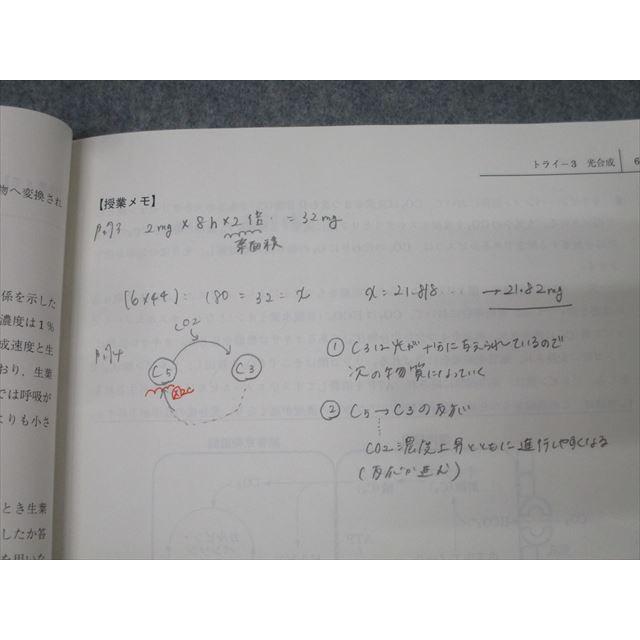 トライー3 光合成 6
物へ変換され
【授業メモ】
2mg × 8h × 2倍 = 32mg
葉面積
係を示した
濃度は1%
成速度と生
おり、生葉
では呼吸が
よりも小さ
(6×44) = 180 = 32 = x x = 21.818 → 21.82mg
CO2
C5 C3
① C3は光が十分に与えられているので
次の物質になっていく
② C5 → C3の反応
CO2濃度上昇とともに進行しやすくなる
(反応が進む)
とき生葉
したか答
を用いた